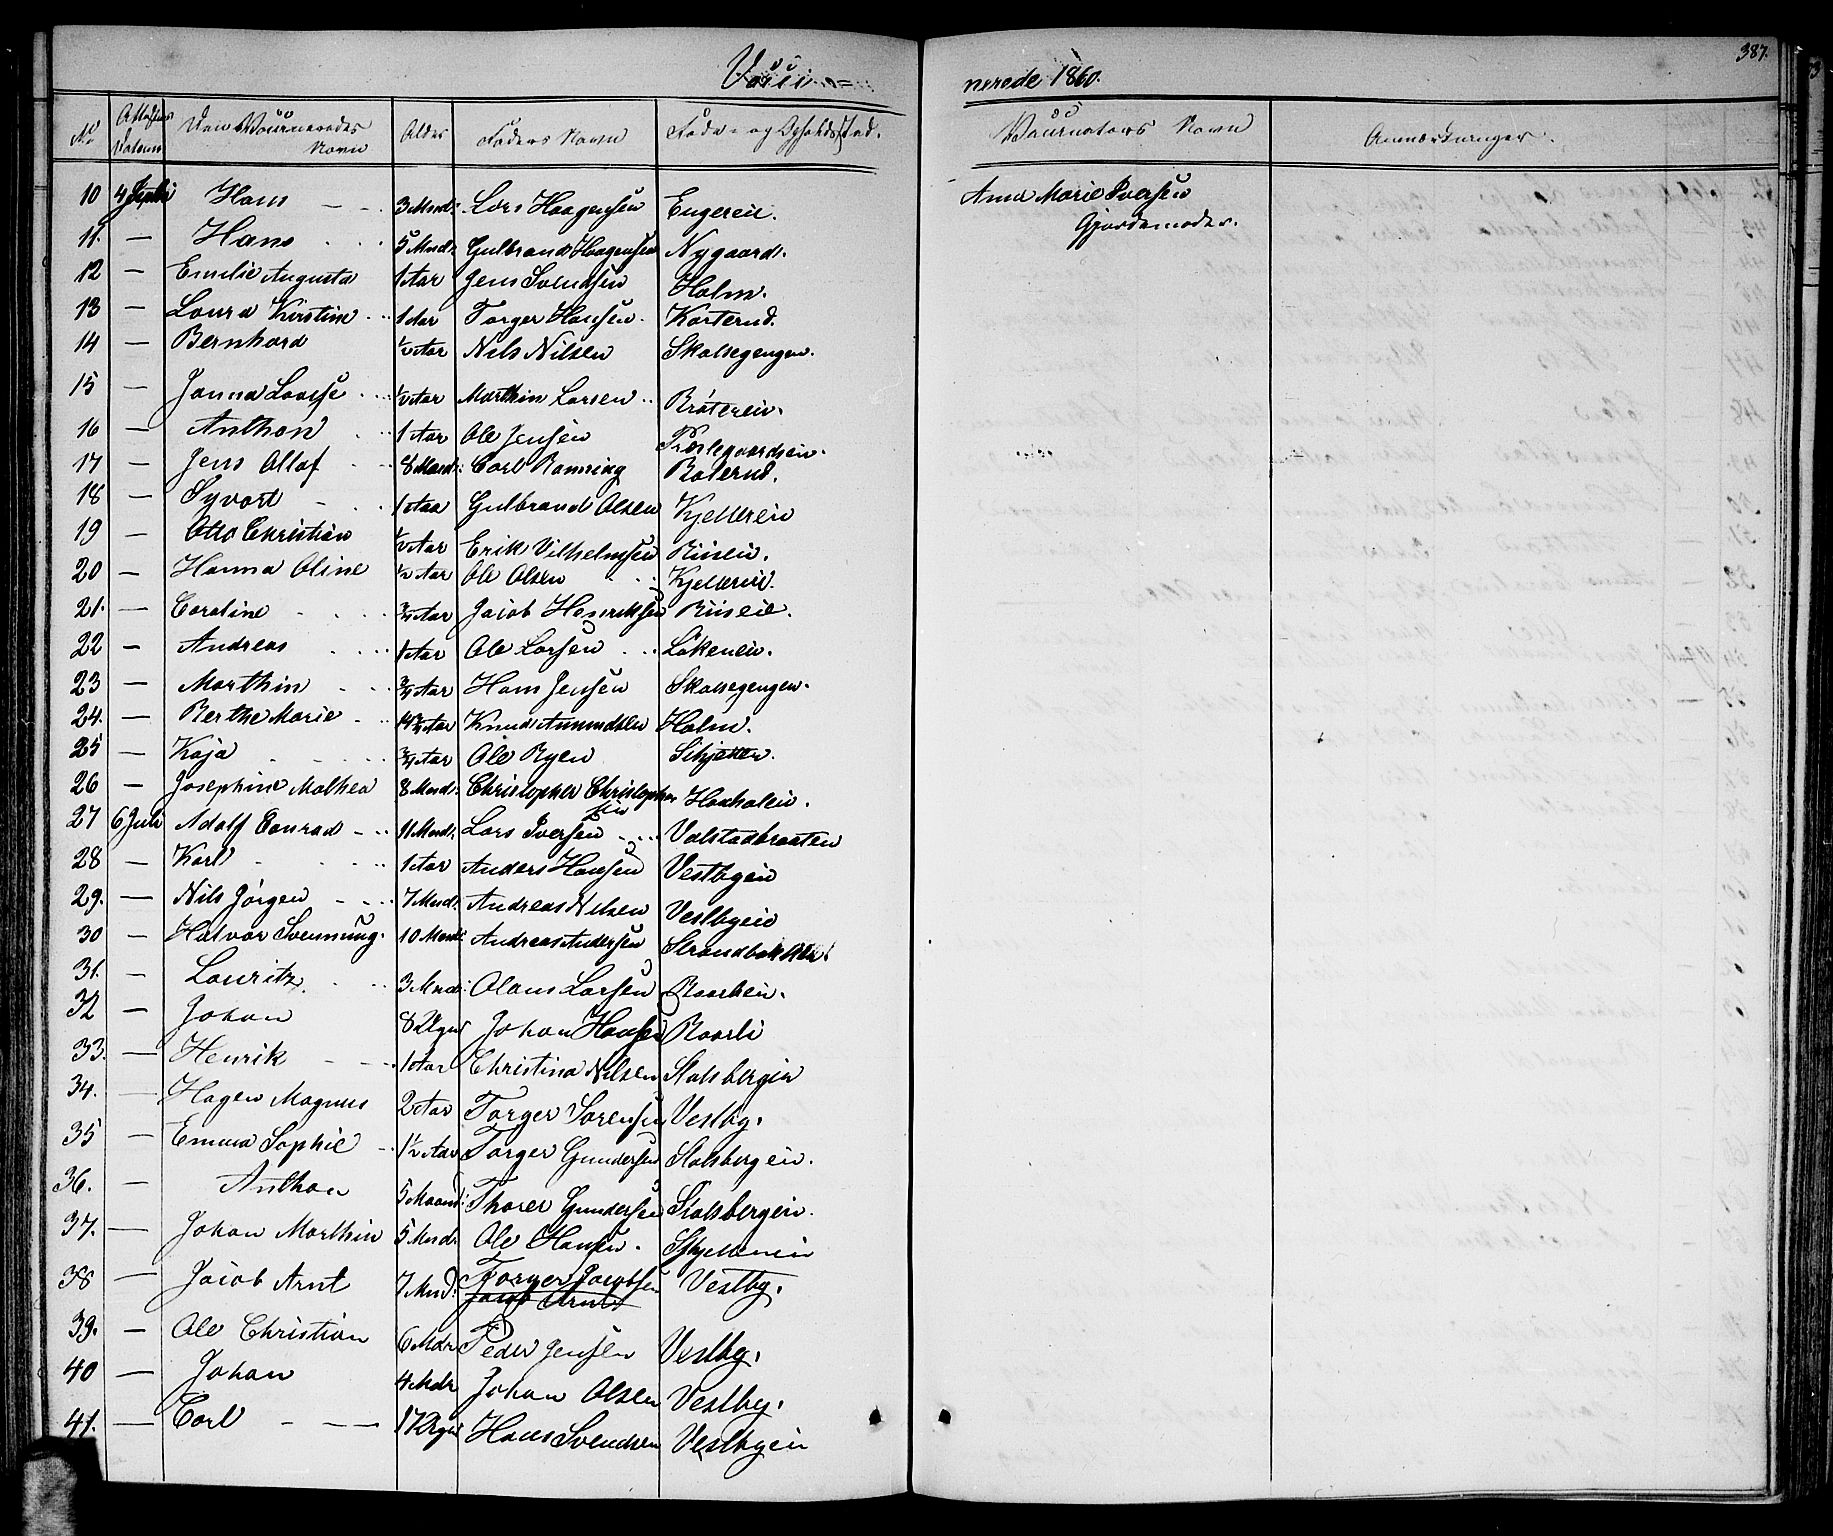 387.
Vaccinerede 1860.
No Attestens Datum Den Vaccineredes Navn Alder Faders Navn Føde- og Opholdssted. Vaccinateurs Navn Anmærkninger.
10 4 Hans 3 Mnd: Lars Haagensen Engereie. Anna Marie Iversen
Gjordemoder.
11. — Hans 5 Mnd: Gulbrand Haagensen Nygaard.
12 — Emilie Augusta 1 Aar Jens Svendsen Holm.
13 — Laura Kirstine 1 Aar Torger Hansen Korterud.
14 — Bernhard 1/2 Aar Nils Nilsen Skalsegengen.
15 — Janna Lovise 1/2 Aar Marthin Larsen Bråtereie.
16 — Anthon 1 Aar Ole Jensen Præstegaardseie.
17 — Jens Ollaf 8 Mand: Carl Ramning Raterud.
18 — Syvert 1 Aar Gulbrand Olsen Kjellereie
19 — Otto Christian 1/2 Aar Erik Vilhelmsen Riiseie.
20 — Hanna Oline 1/2 Aar Ole Olsen Kjellereie.
21. — Caroline 3/4 Aar Jacob Henriksen Riiseie.
22 — Andreas 1 Aar Ole Larsen Løkeneie.
23 — Marthin 3/4 Aar Hans Jensen Skalsegengen.
24. — Berthe Marie 14 3/4 Aar Knud Amundsen Holm.
25 — Kaja 3/4 Aar Ole Ryen Schjetten.
26 — Josephine Mathea 8 Mnd: Christopher Christophersen Haxhaleie.
27 6 Juli Adolf Conrad 11 Mnd. Lars Iversen Valstadbraaten
28 — Karl 1 Aar Anders Hansen Vestbyeie
29. — Nils Jørgen 7 Mnd. Andreas Nilsen Vestbyeie
30 — Halvor Svenning. 10 Mnd: Andreas Andersen
31. — Lauritz 3 Mnd: Olaus Larsen
32 — Johan 8 Uger Johan Hansen Raarli
33. — Henrik 1 Aar Christina Nilsen Stalsbergeie
34. — Hagen Magnus 2 Aar Torger Sørensen Vestby.
35 — Emma Sophie 1 1/2 Aar Torger Gundersen Stalsbergeie.
36. — Anthon 5 Maaned: Thorer Gundersen Stalsbergeie.
37. — Johan Marthin 5 Mnd. Ole Hansen. Schjetteneie
38 — Jacob Arnt 7 Mnd. Torger Jacobsen Vestby.
Jacob Arnt
39. — Ole Christian 6 Mdr Peder Jensen Vestby.
40 — Johan 4 Mdr Johan Olsen Vestby.
41. — Carl 17 Uger Hans Svendsen Vestbyeie